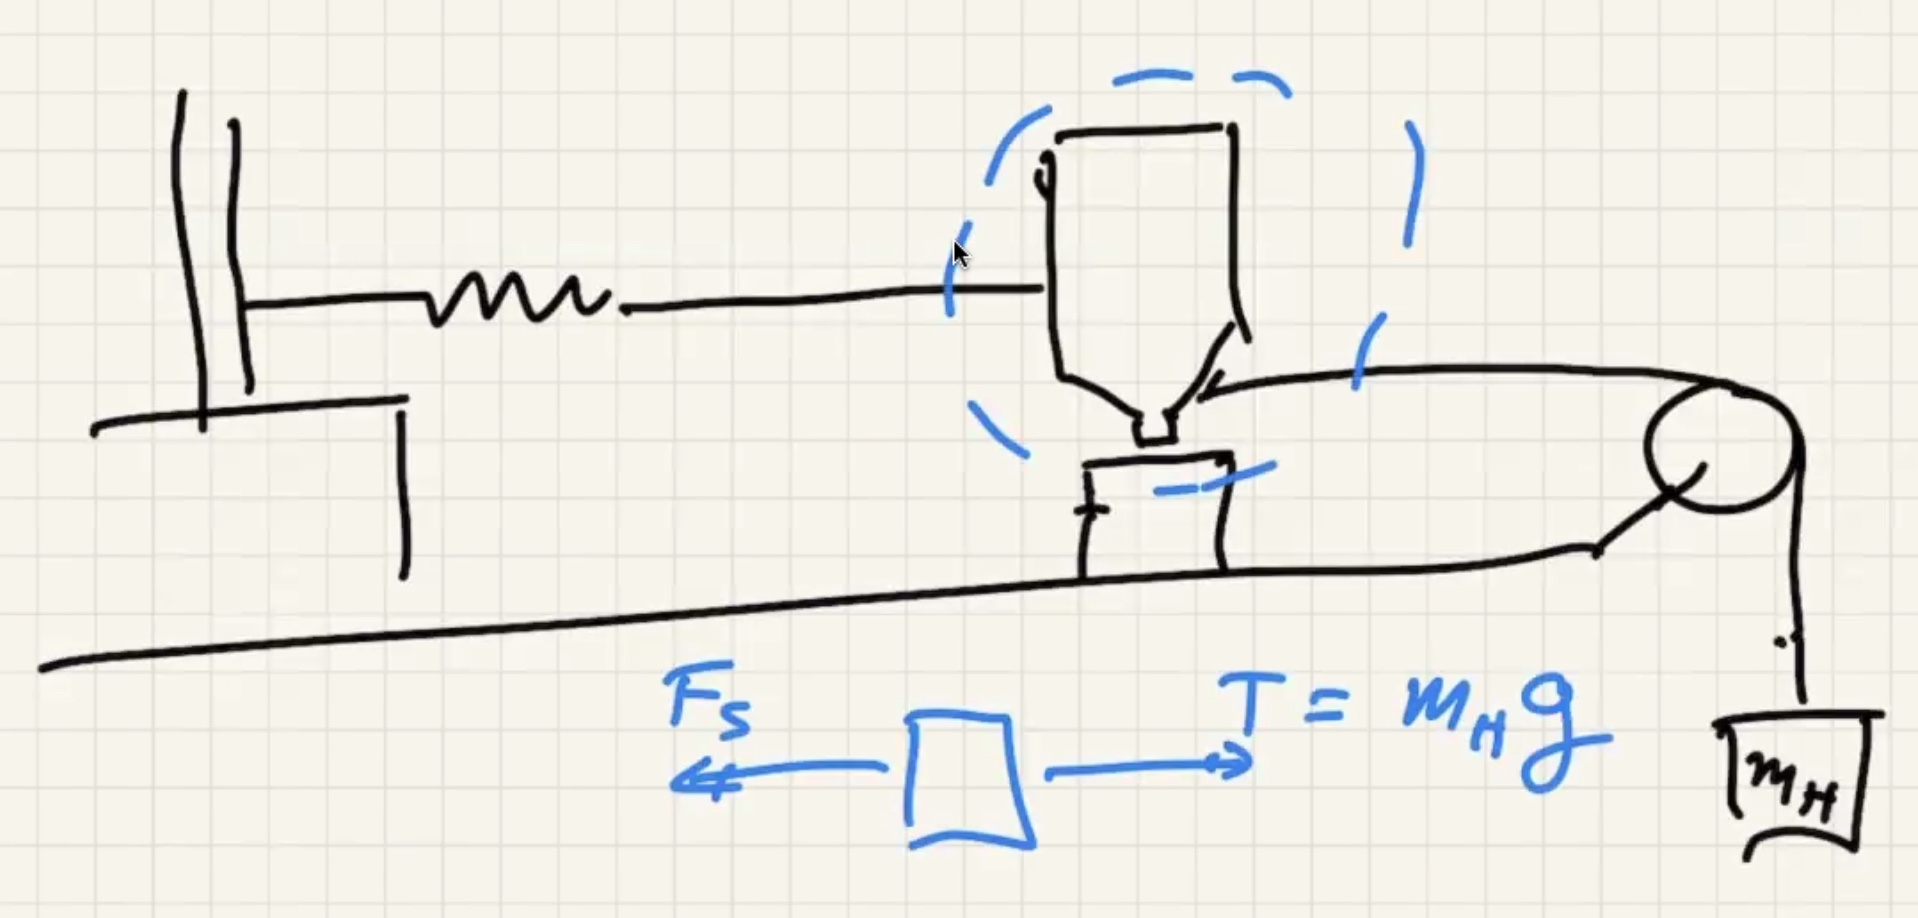 F_S
T = m_H g
m_H